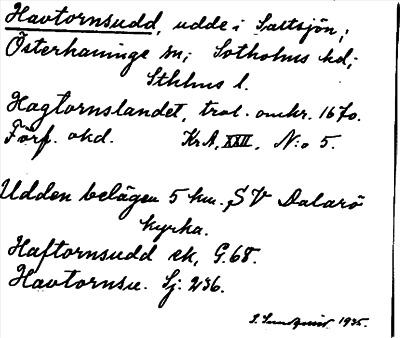 Havtornsudd, udde i Saltsjön;
Österhaninge sn; Sotholms hd;
Sthlms l.
Hagtornslandet, trol. omkr. 1670.
Förf. okd. KrA, XXII, N:o 5.
Udden belägen 5 km. SV Dalarö
kyrka.
Haftornsudd ek, G.68.
Havtornsu. Sj. 236.
1935.